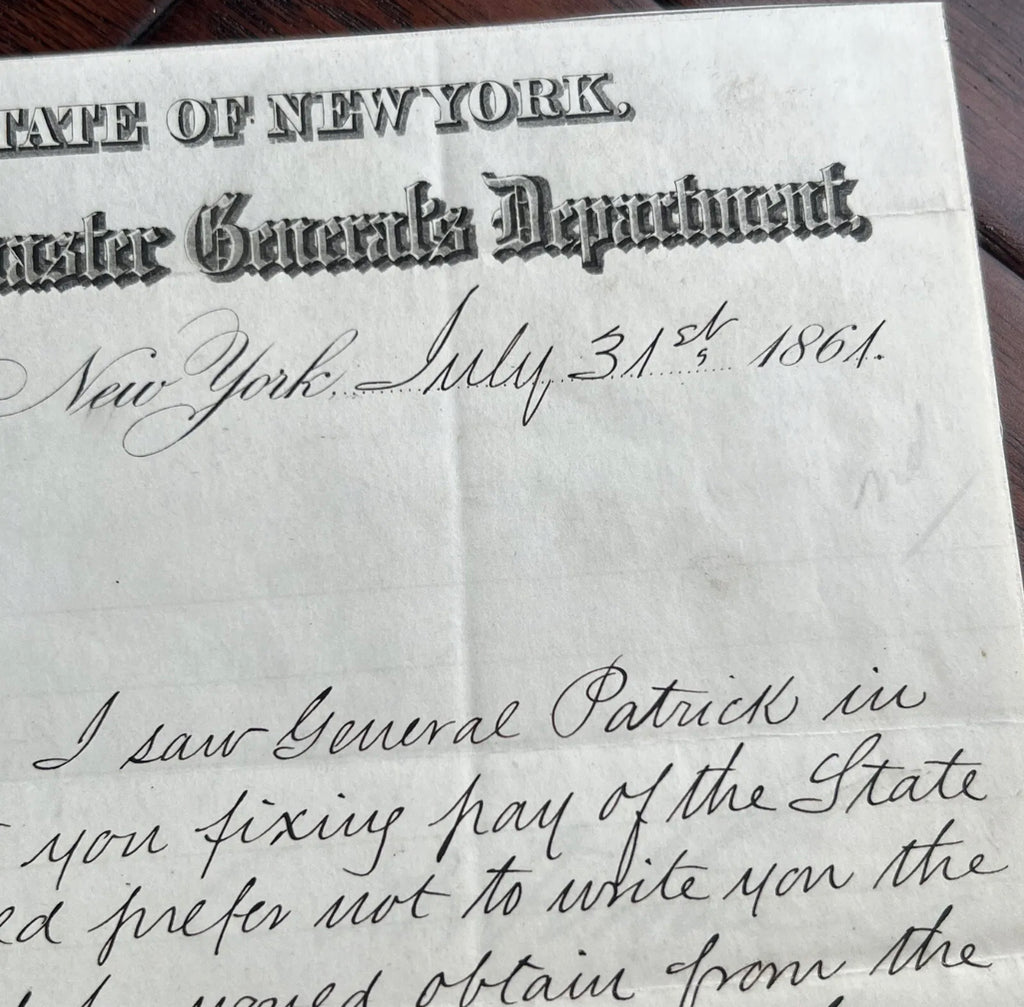 TATE OF NEW YORK.
aster General's Department,
New York, July 31st, 1861.
I saw General Patrick in
you fixing pay of the State
ed prefer not to write you the
obtain from the